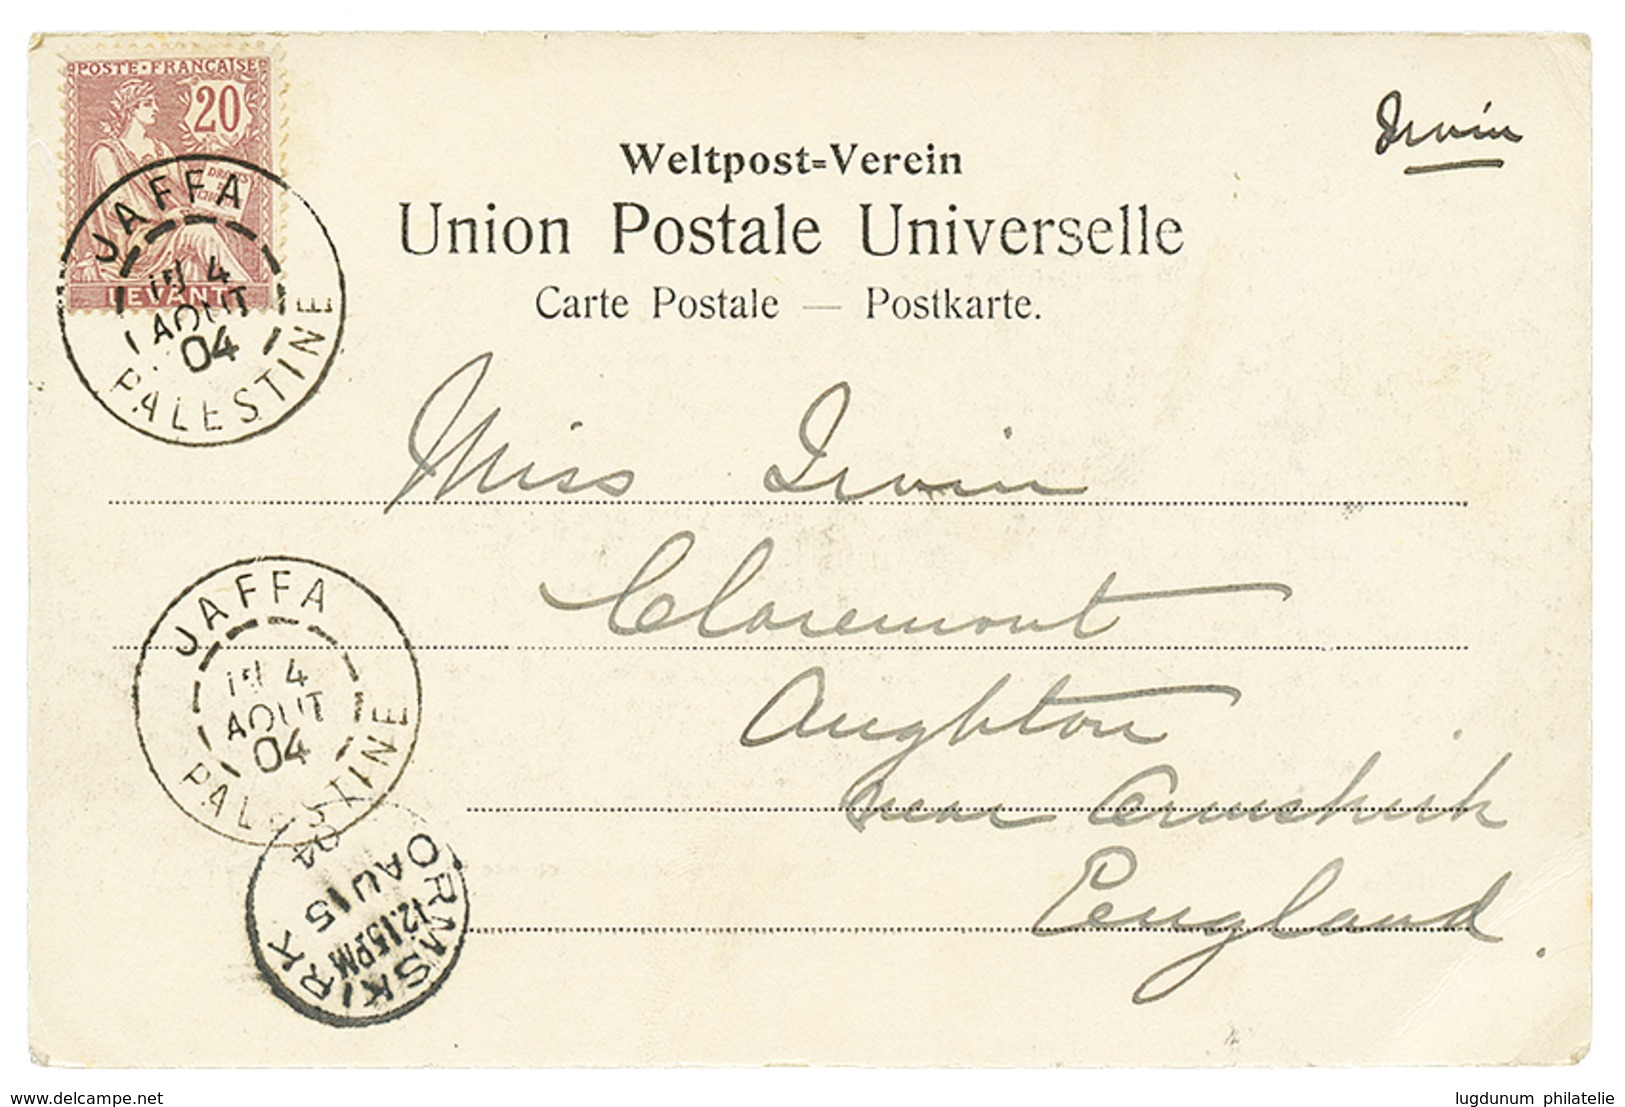 POSTE • FRANÇAISE
20
DROITS
LEVANT
JAFFA
4
AOUT
04
PALESTINE
Irvin
Weltpost=Verein
Union Postale Universelle
Carte Postale — Postkarte.
Miss Irvin
Claremont
Aughton
near Ormskirk
England.
JAFFA
4
AOUT
04
PALESTINE
ORMSKIRK
12.15PM
AU 15
04
www.delcampe.net
lugdunum philatelie